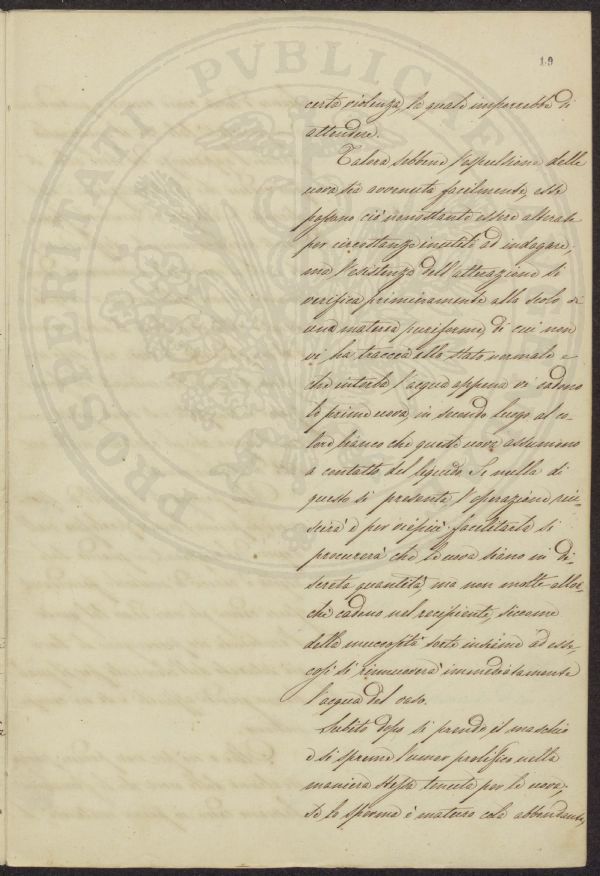 PROSPERITATI PVBLICAE
19
certa violenza, la quale imporrebbe di
attendere.
Talora sebbene l'espulsione delle
uova sia avvenuta facilmente, esse
possono ciò nonostante essere alterate
per circostanze inutili ad indagare;
ma l'esistenza dell'alterazione si
verifica primieramente allo scolo di
una materia puriforme, di cui non
vi ha traccia allo stato normale e
che intorba l'acqua appena vi cadono
le prime uova, in secondo luogo al co-
lore bianco che queste uova assumono
a contatto del liquido. Se nulla di
questo si presenta, l'operazione riu-
scirà e per vieppiù facilitarla si
procurerà che le uova siano in di-
screta quantità, ma non molte allor-
chè cadono nel recipiente, siccome
della mucosità sorte insieme ad esse
così si rinnuoverà immediatamente
l'acqua del vaso.
Subito dopo si prende il maschio
e si spreme l'umor prolifico nella
maniera stessa tenuta per le uova;
Se lo sperma è maturo cola abbondante,